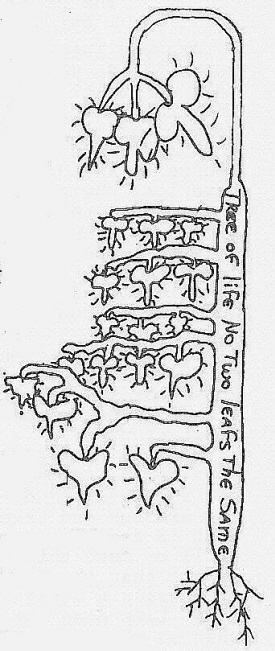 Tree of life No Two leafs The Same